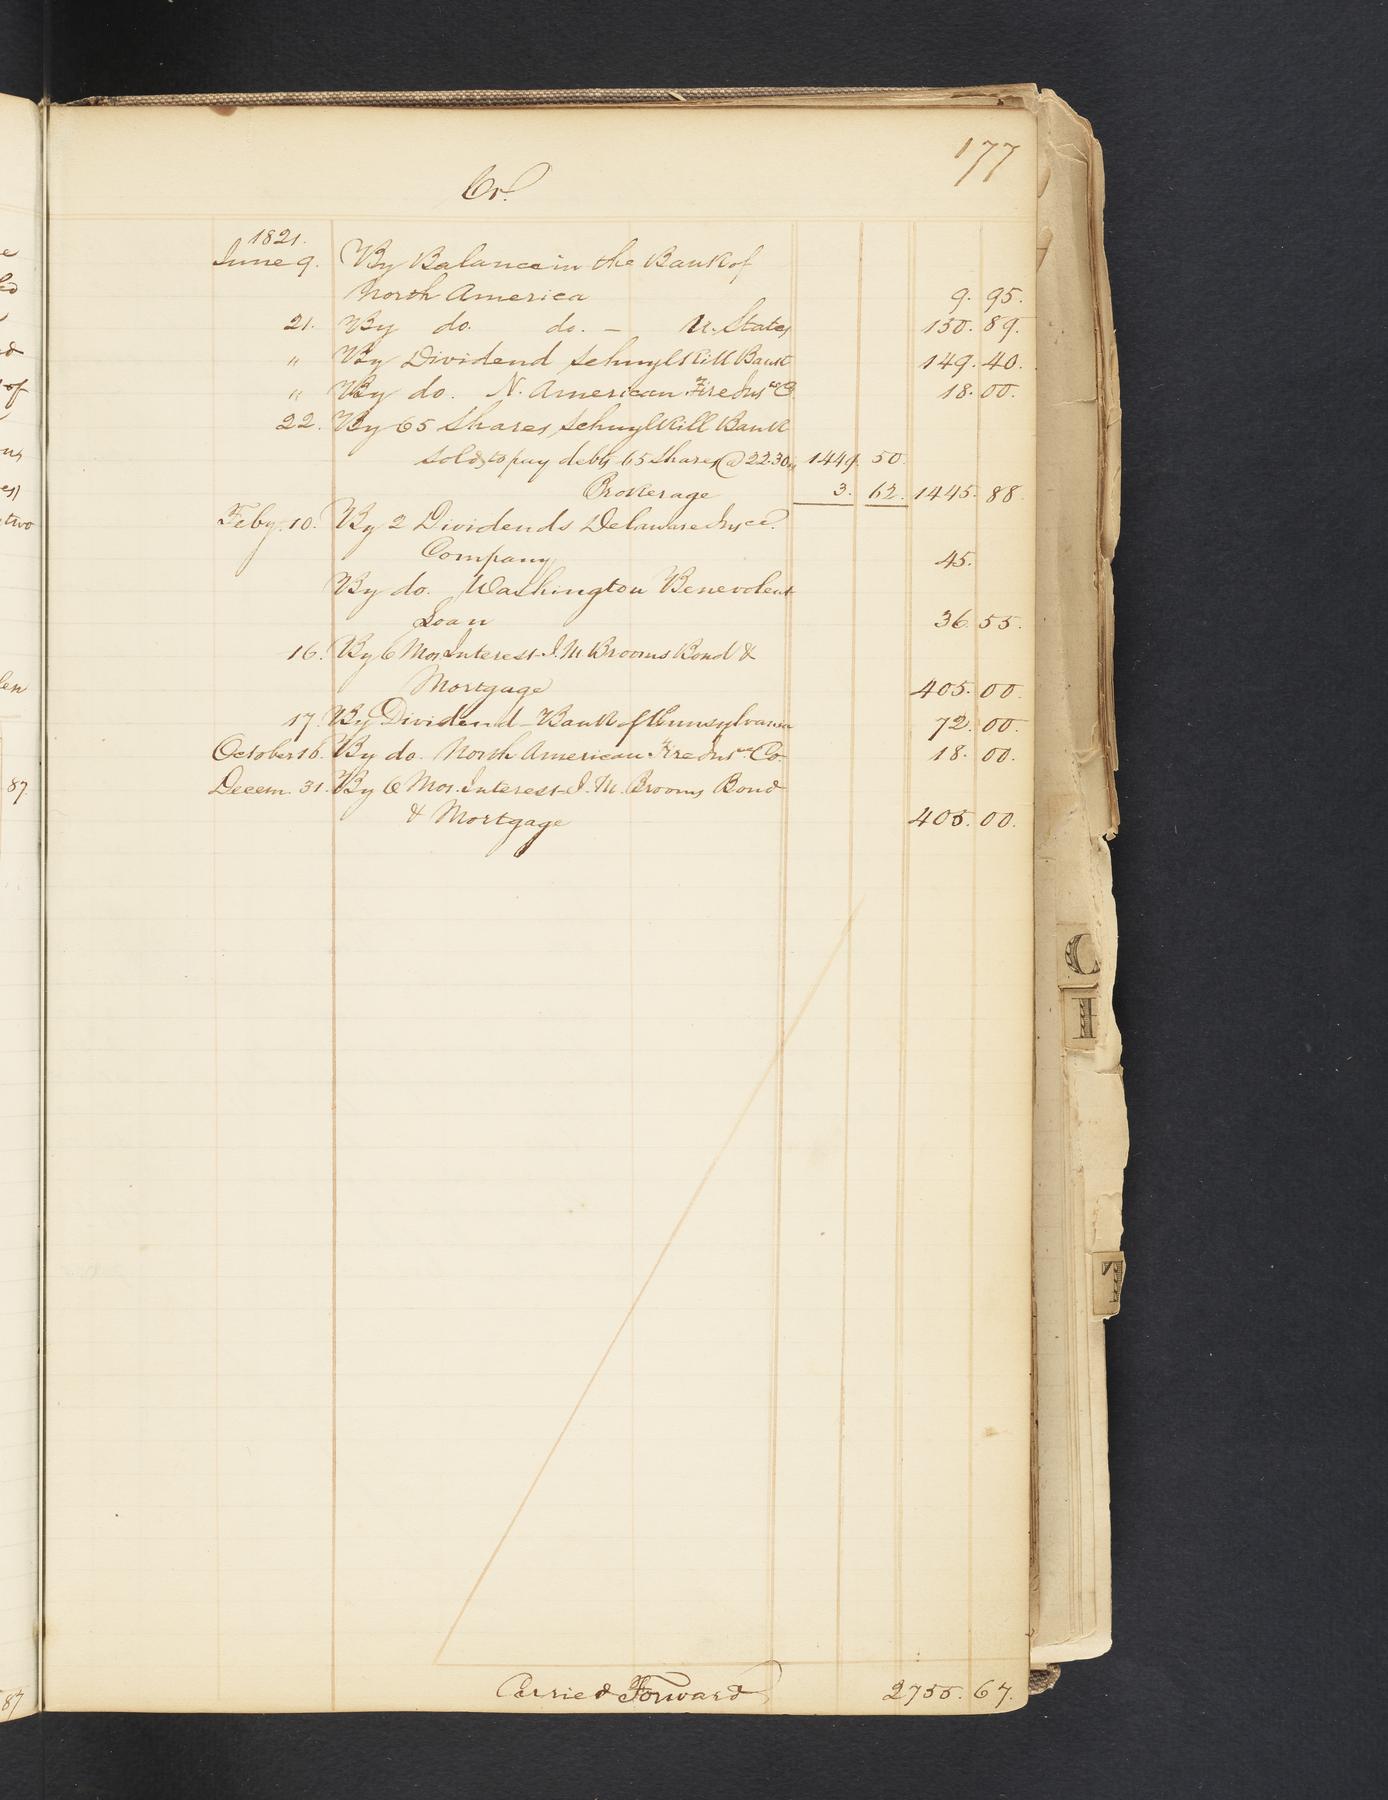 of
two
87
87
177
Cr.
1821.
June 9. By Balance in the Bank of
North America 9. 95.
21. By do. do. – U. States 150. 89.
" By Dividend Schuylkill Bank 149. 40.
" By do. N. American Fire Insce Co. 18. 00.
22. By 65 Shares Schuylkill Bank
sold to pay debts 65 Shares @ 22.30 1449. 50.
Brokerage 3. 62. 1445. 88
Feby. 10. By 2 Dividends Delaware Insce.
Company 45.
By do. Washington Benevolent
Loan 36. 55.
16. By 6 Mos. Interest J. M. Brooms Bond &
Mortgage 405. 00.
17. By Dividend Bank of Pennsylvania 72. 00.
October 16. By do. North American Fire Insce. Co. 18. 00.
Decem. 31. By 6 Mos. Interest J. M. Brooms Bond
& Mortgage 405. 00.
Carried Forward 2755. 67.
T